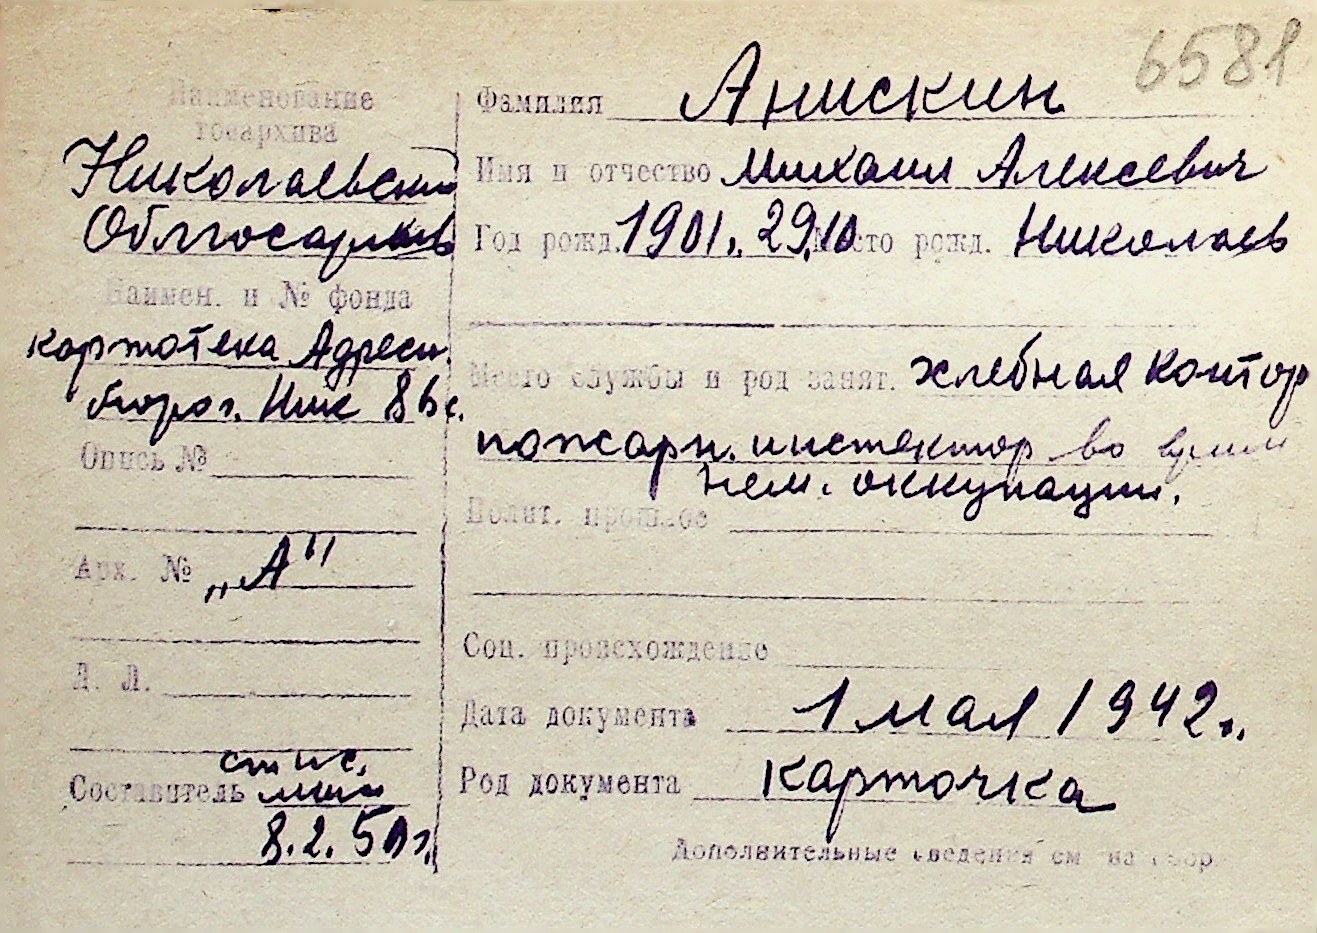 6581
Наименование
госархива
Николаевский
Облгосархив
Наимен. и № фонда
картотека Адресн.
бюро г. Ник
Опись №
Арх. № „А"
Д. Л.
Составитель
8.2.50 г.
Фамилия Анискин
Имя и отчество Михаил Алексевич
Год рожд. 1901 г. 29.10 Место рожд. Николаев
Место службы и род занят. хлебная контор
пожарн. инспектор во время
нем. оккупации.
Полит. прошлое
Соц. происхождение
Дата документа 1 мая 1942 г.
Род документа карточка
Дополнительные сведения см на обор.